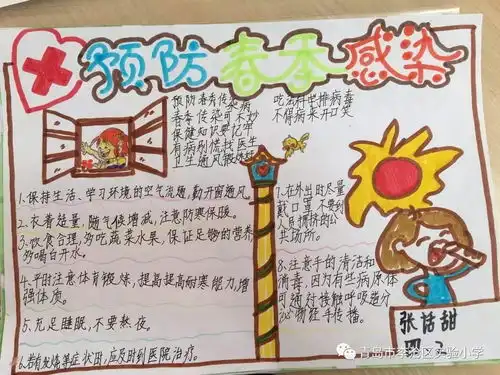 预防春季感染
预防春季传染病
春季传染可不妙
保健知识要记牢
有病别慌找医生
卫生通风锻炼好
吃法科学排病毒
不得病来开口笑
1.保持生活、学习环境的空气流通,勤开窗通风。
2.衣着适量,随气候增减,注意防寒保暖。
3.饮食合理,多吃蔬菜水果,保证足够的营养,
多喝白开水。
4.平时注意体育锻炼,提高提高耐寒能力,增
强体质。
5.充足睡眠,不要熬夜。
6.若有发烧等症状时,应及时到医院治疗。
7.在外出时尽量
戴口罩,不要到
人员拥挤的公
共场所。
8.注意手的清洁和
消毒,因为有些病原体
可通过接触呼吸道分
泌物经手传播。
张恬甜
四
青岛市李沧区实验小学